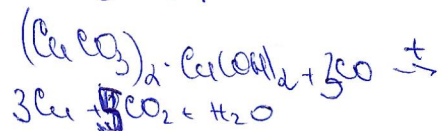 (CuCO₃)₂·Cu(OH)₂ + 3CO →ᵗ
3Cu + 5CO₂ + H₂O